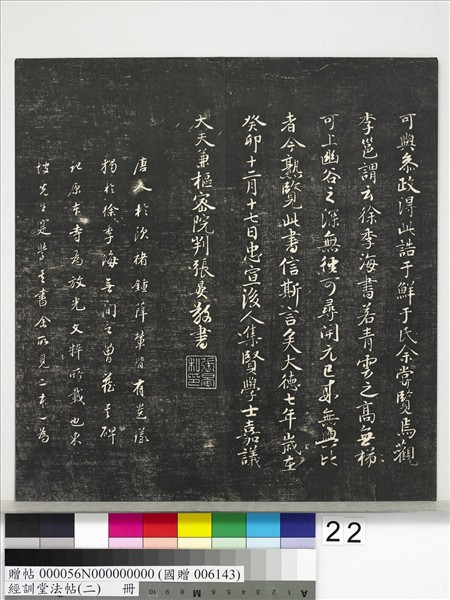 可與參政得此誥于鮮于氏余嘗賢焉觀
李邕謂云徐季海書若青雲之高無梯
可上幽谷之深無徑可尋開元已來無與比
者今熟覽此書信斯言矣大德七年歲在
癸卯十二月十七日忠宣後人集賢學士嘉議
大夫兼樞密院判張晏敬書
張晏私印
唐人於歐褚鍾薛皆有
獨於徐季海無間言曾其碑
原本寺為放光文所載也東
坡先生學其書余所見二本一為
22
贈帖 000056N000000000 (國贈 006143)
經訓堂法帖(二) 冊